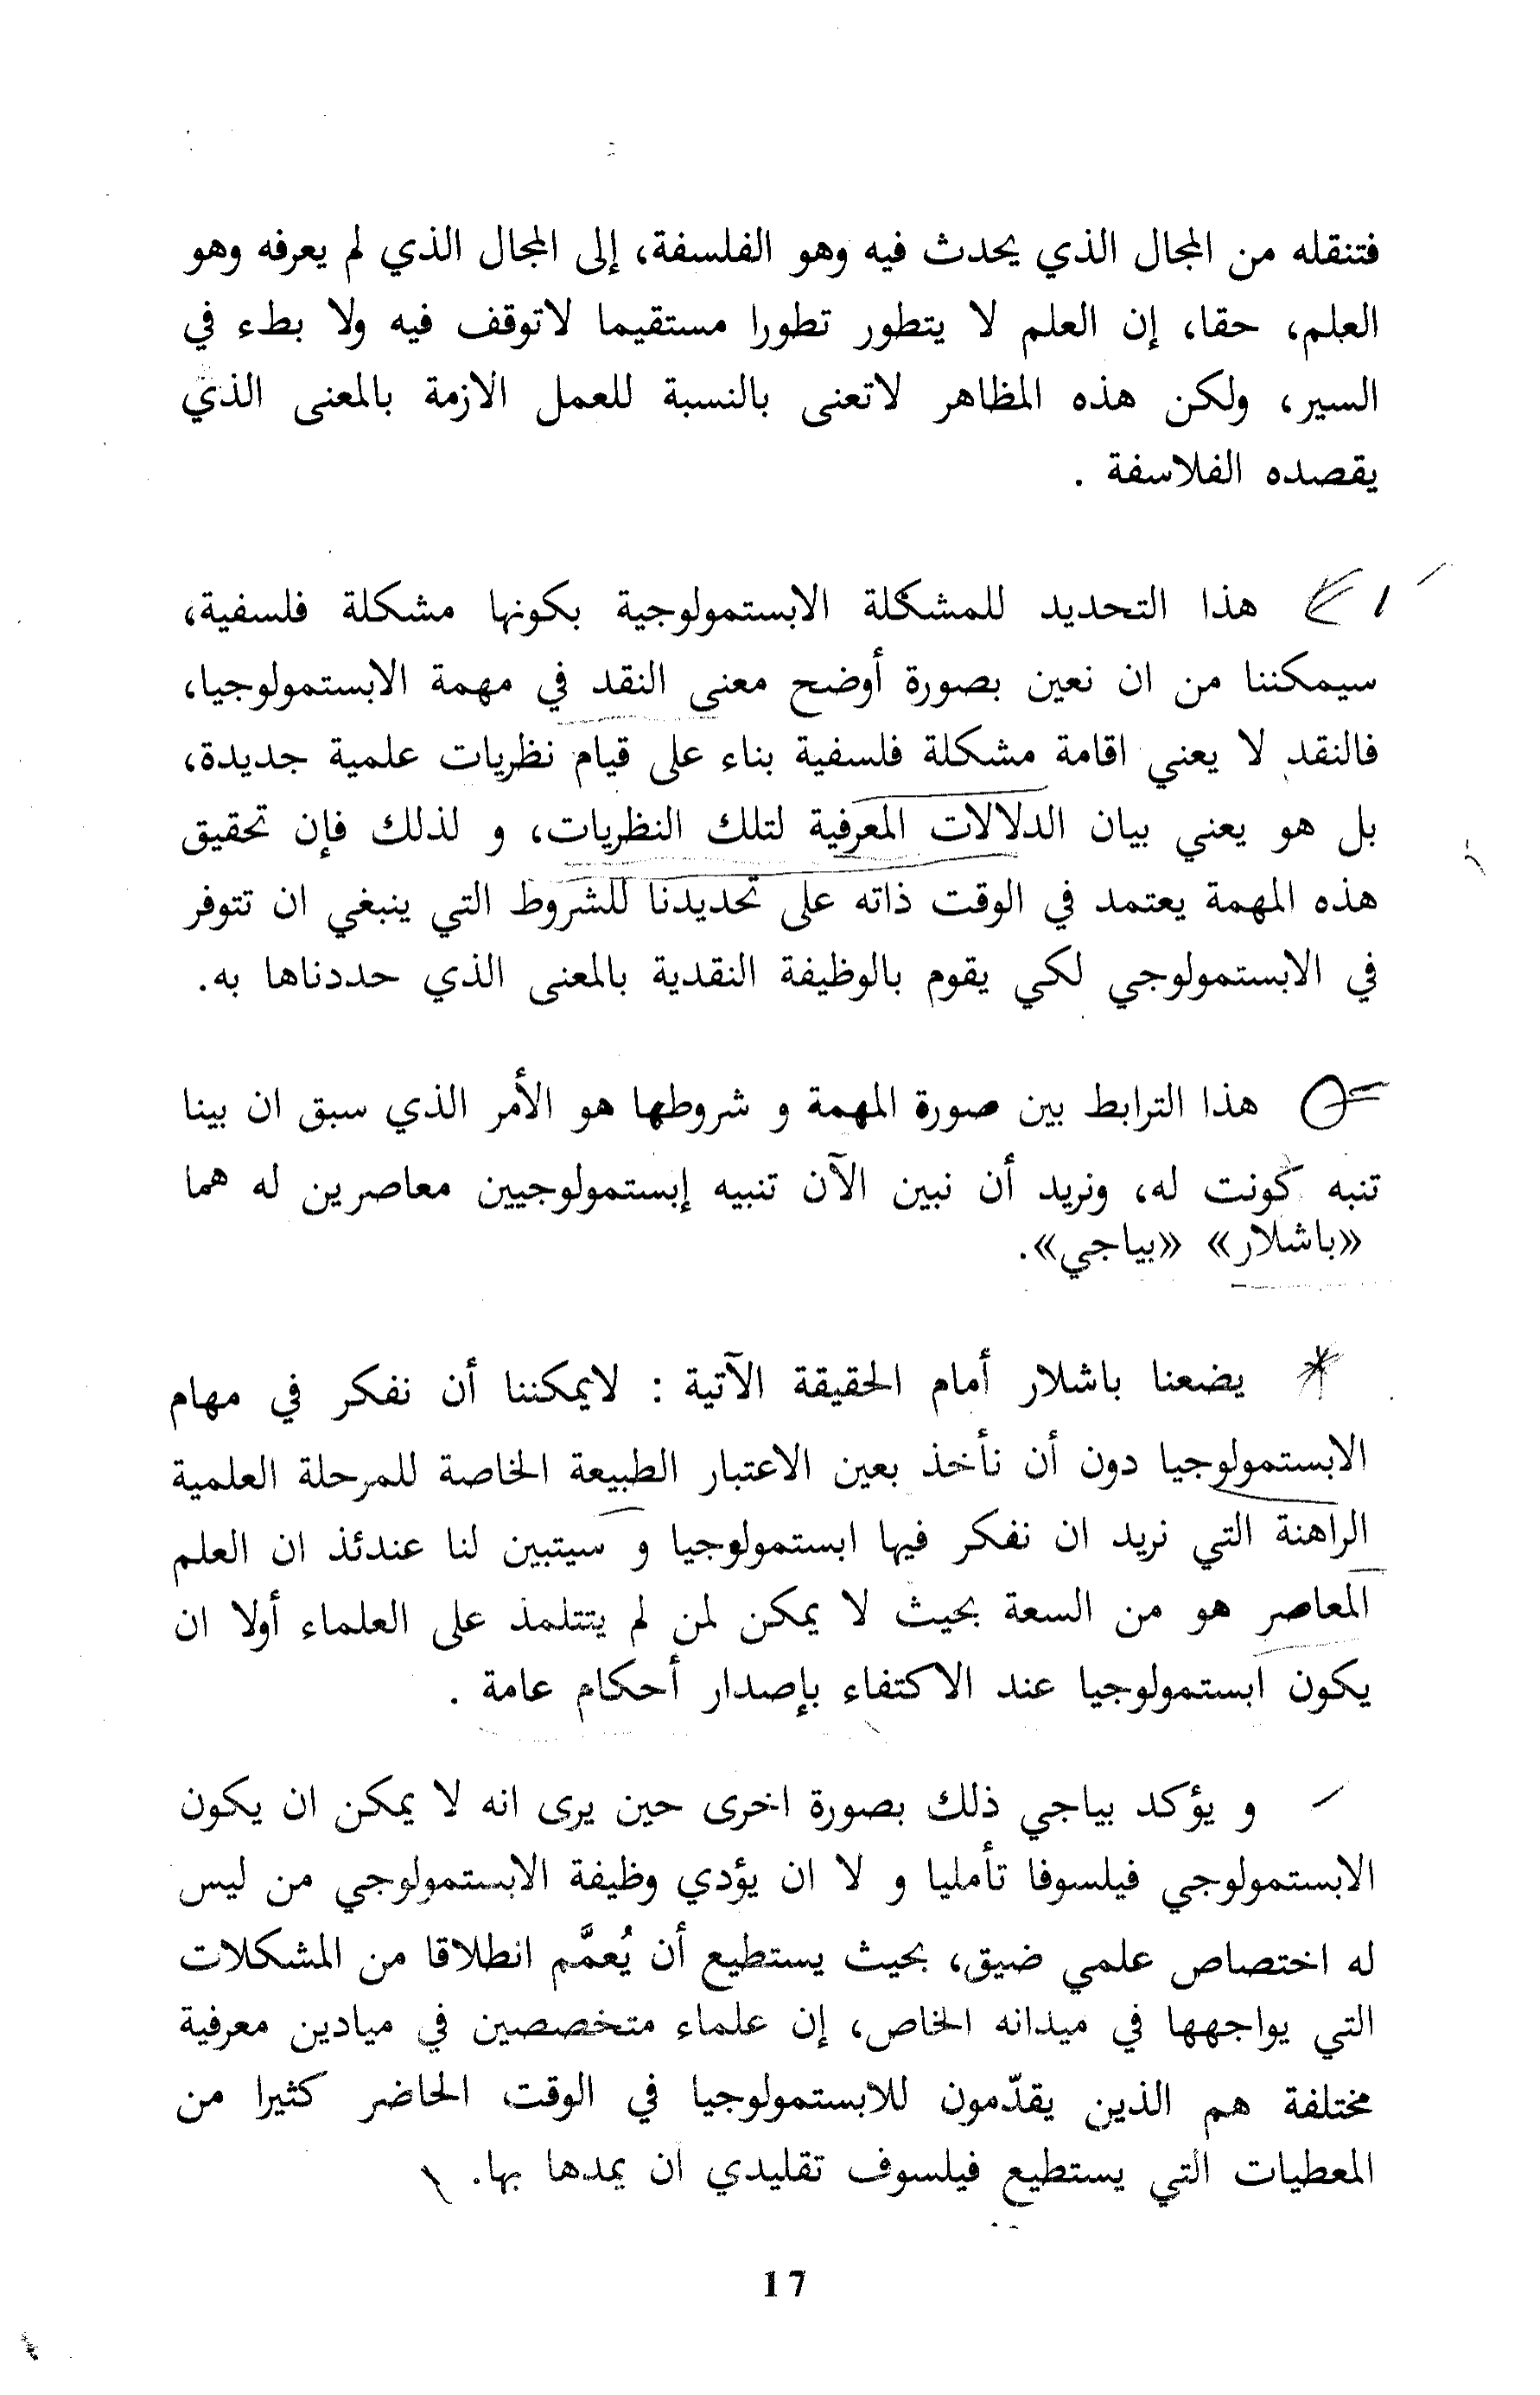 فتنقله من المجال الذي يحدث فيه وهو الفلسفة، إلى المجال الذي لم يعرفه وهو
العلم، حقا، إن العلم لا يتطور تطورا مستقيما لاتوقف فيه ولا بطء في
السير، ولكن هذه المظاهر لاتعنى بالنسبة للعمل الازمة بالمعنى الذي
يقصده الفلاسفة .
هذا التحديد للمشكلة الابستمولوجية بكونها مشكلة فلسفية،
سيمكننا من ان نعين بصورة أوضح معنى النقد في مهمة الابستمولوجيا،
فالنقد لا يعني اقامة مشكلة فلسفية بناء على قيام نظريات علمية جديدة،
بل هو يعني بيان الدلالات المعرفية لتلك النظريات، و لذلك فإن تحقيق
هذه المهمة يعتمد في الوقت ذاته على تحديدنا للشروط التي ينبغي ان تتوفر
في الابستمولوجي لكي يقوم بالوظيفة النقدية بالمعنى الذي حددناها به.
هذا الترابط بين صورة المهمة و شروطها هو الأمر الذي سبق ان بينا
تنبه كونت له، ونريد أن نبين الآن تنبيه إبستمولوجيين معاصرين له هما
«باشلار» «بياجي».
يضعنا باشلار أمام الحقيقة الآتية : لايمكننا أن نفكر في مهام
الابستمولوجيا دون أن نأخذ بعين الاعتبار الطبيعة الخاصة للمرحلة العلمية
الراهنة التي نريد ان نفكر فيها ابستمولوجيا و سيتبين لنا عندئذ ان العلم
المعاصر هو من السعة بحيث لا يمكن لمن لم يتتلمذ على العلماء أولا ان
يكون ابستمولوجيا عند الاكتفاء بإصدار أحكام عامة .
و يؤكد بياجي ذلك بصورة اخرى حين يرى انه لا يمكن ان يكون
الابستمولوجي فيلسوفا تأمليا و لا ان يؤدي وظيفة الابستمولوجي من ليس
له اختصاص علمي ضيق، بحيث يستطيع أن يُعمَّم انطلاقا من المشكلات
التي يواجهها في ميدانه الخاص، إن علماء متخصصين في ميادين معرفية
مختلفة هم الذين يقدّمون للابستمولوجيا في الوقت الحاضر كثيرا من
المعطيات التي يستطيع فيلسوف تقليدي ان يمدها بها.
17